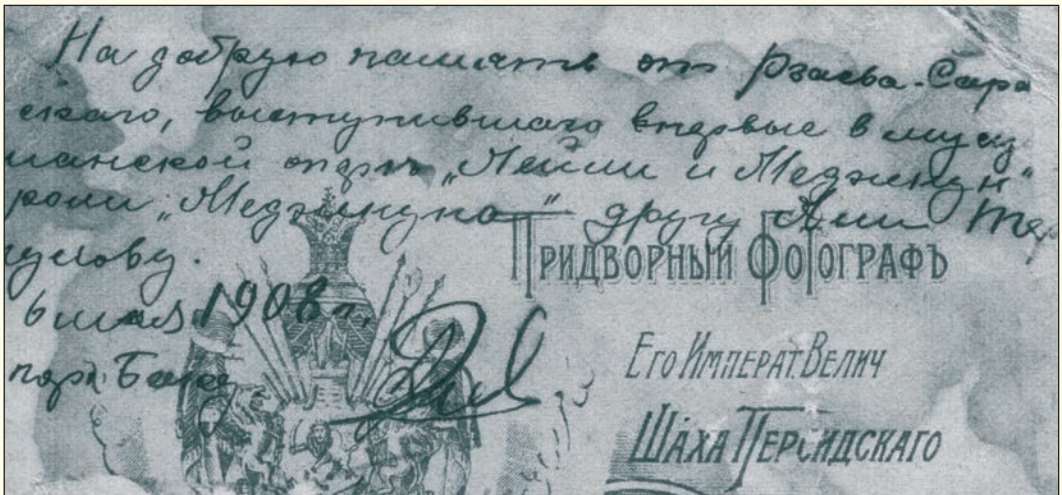 На добрую память от Рзаева-Сара
скаго, выступившаго впервые в мусуль
манской оперѣ „Лейли и Меджнун"
роли „Меджнуна" другу Али Те
гулову.
6 мая 1908 г.
гор. Баку
ПРИДВОРНЫЙ ФОТОГРАФЪ
ЕГО ИМПЕРАТ. ВЕЛИЧ
ШАХА ПЕРСИДСКАГО